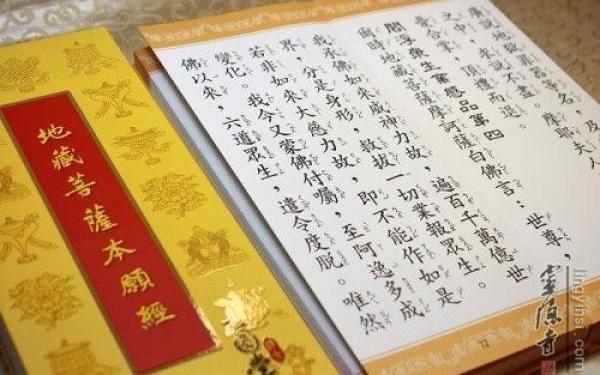 地藏菩薩本願經
廣說地獄罪器等名,及
之中,求說不盡。摩耶夫人
憂合掌,頂禮而退。
閻浮眾生業感品第四
爾時地藏菩薩摩訶薩白佛言:世尊,
我承佛如來威神力故,遍百千萬億世
界,分是身形,救拔一切業報眾生。
若非如來大慈力故,即不能作如是
變化。我今又蒙佛付囑,至阿逸多成
佛以來,六道眾生,遣令度脫。唯然
72